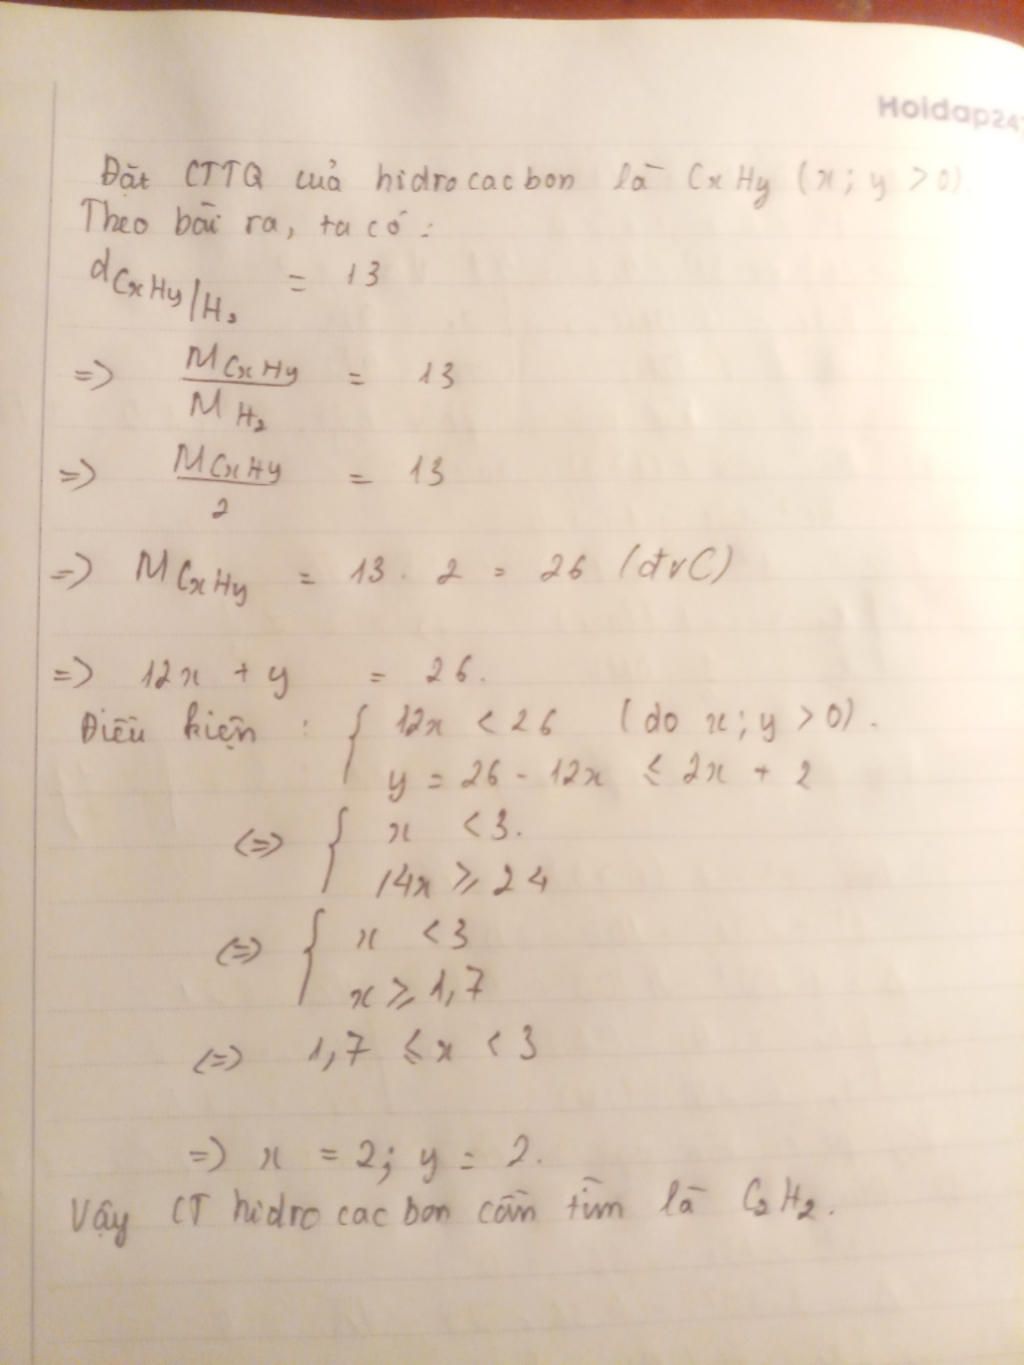 Hoidap247
Đặt CTTQ của hidrocacbon là CxHy (x; y > 0).
Theo bài ra, ta có :
dCxHy/H₂ = 13
=> MCxHy / MH₂ = 13
=> MCxHy / 2 = 13
=> MCxHy = 13 . 2 = 26 (đvC)
=> 12x + y = 26.
Điều kiện : { 12x < 26 (do x; y > 0).
y = 26 - 12x ≤ 2x + 2
<=> { x < 3.
14x ≥ 24
<=> { x < 3
x ≥ 1,7
<=> 1,7 ≤ x < 3
=> x = 2; y = 2.
Vậy CT hidrocacbon cần tìm là C₂H₂.